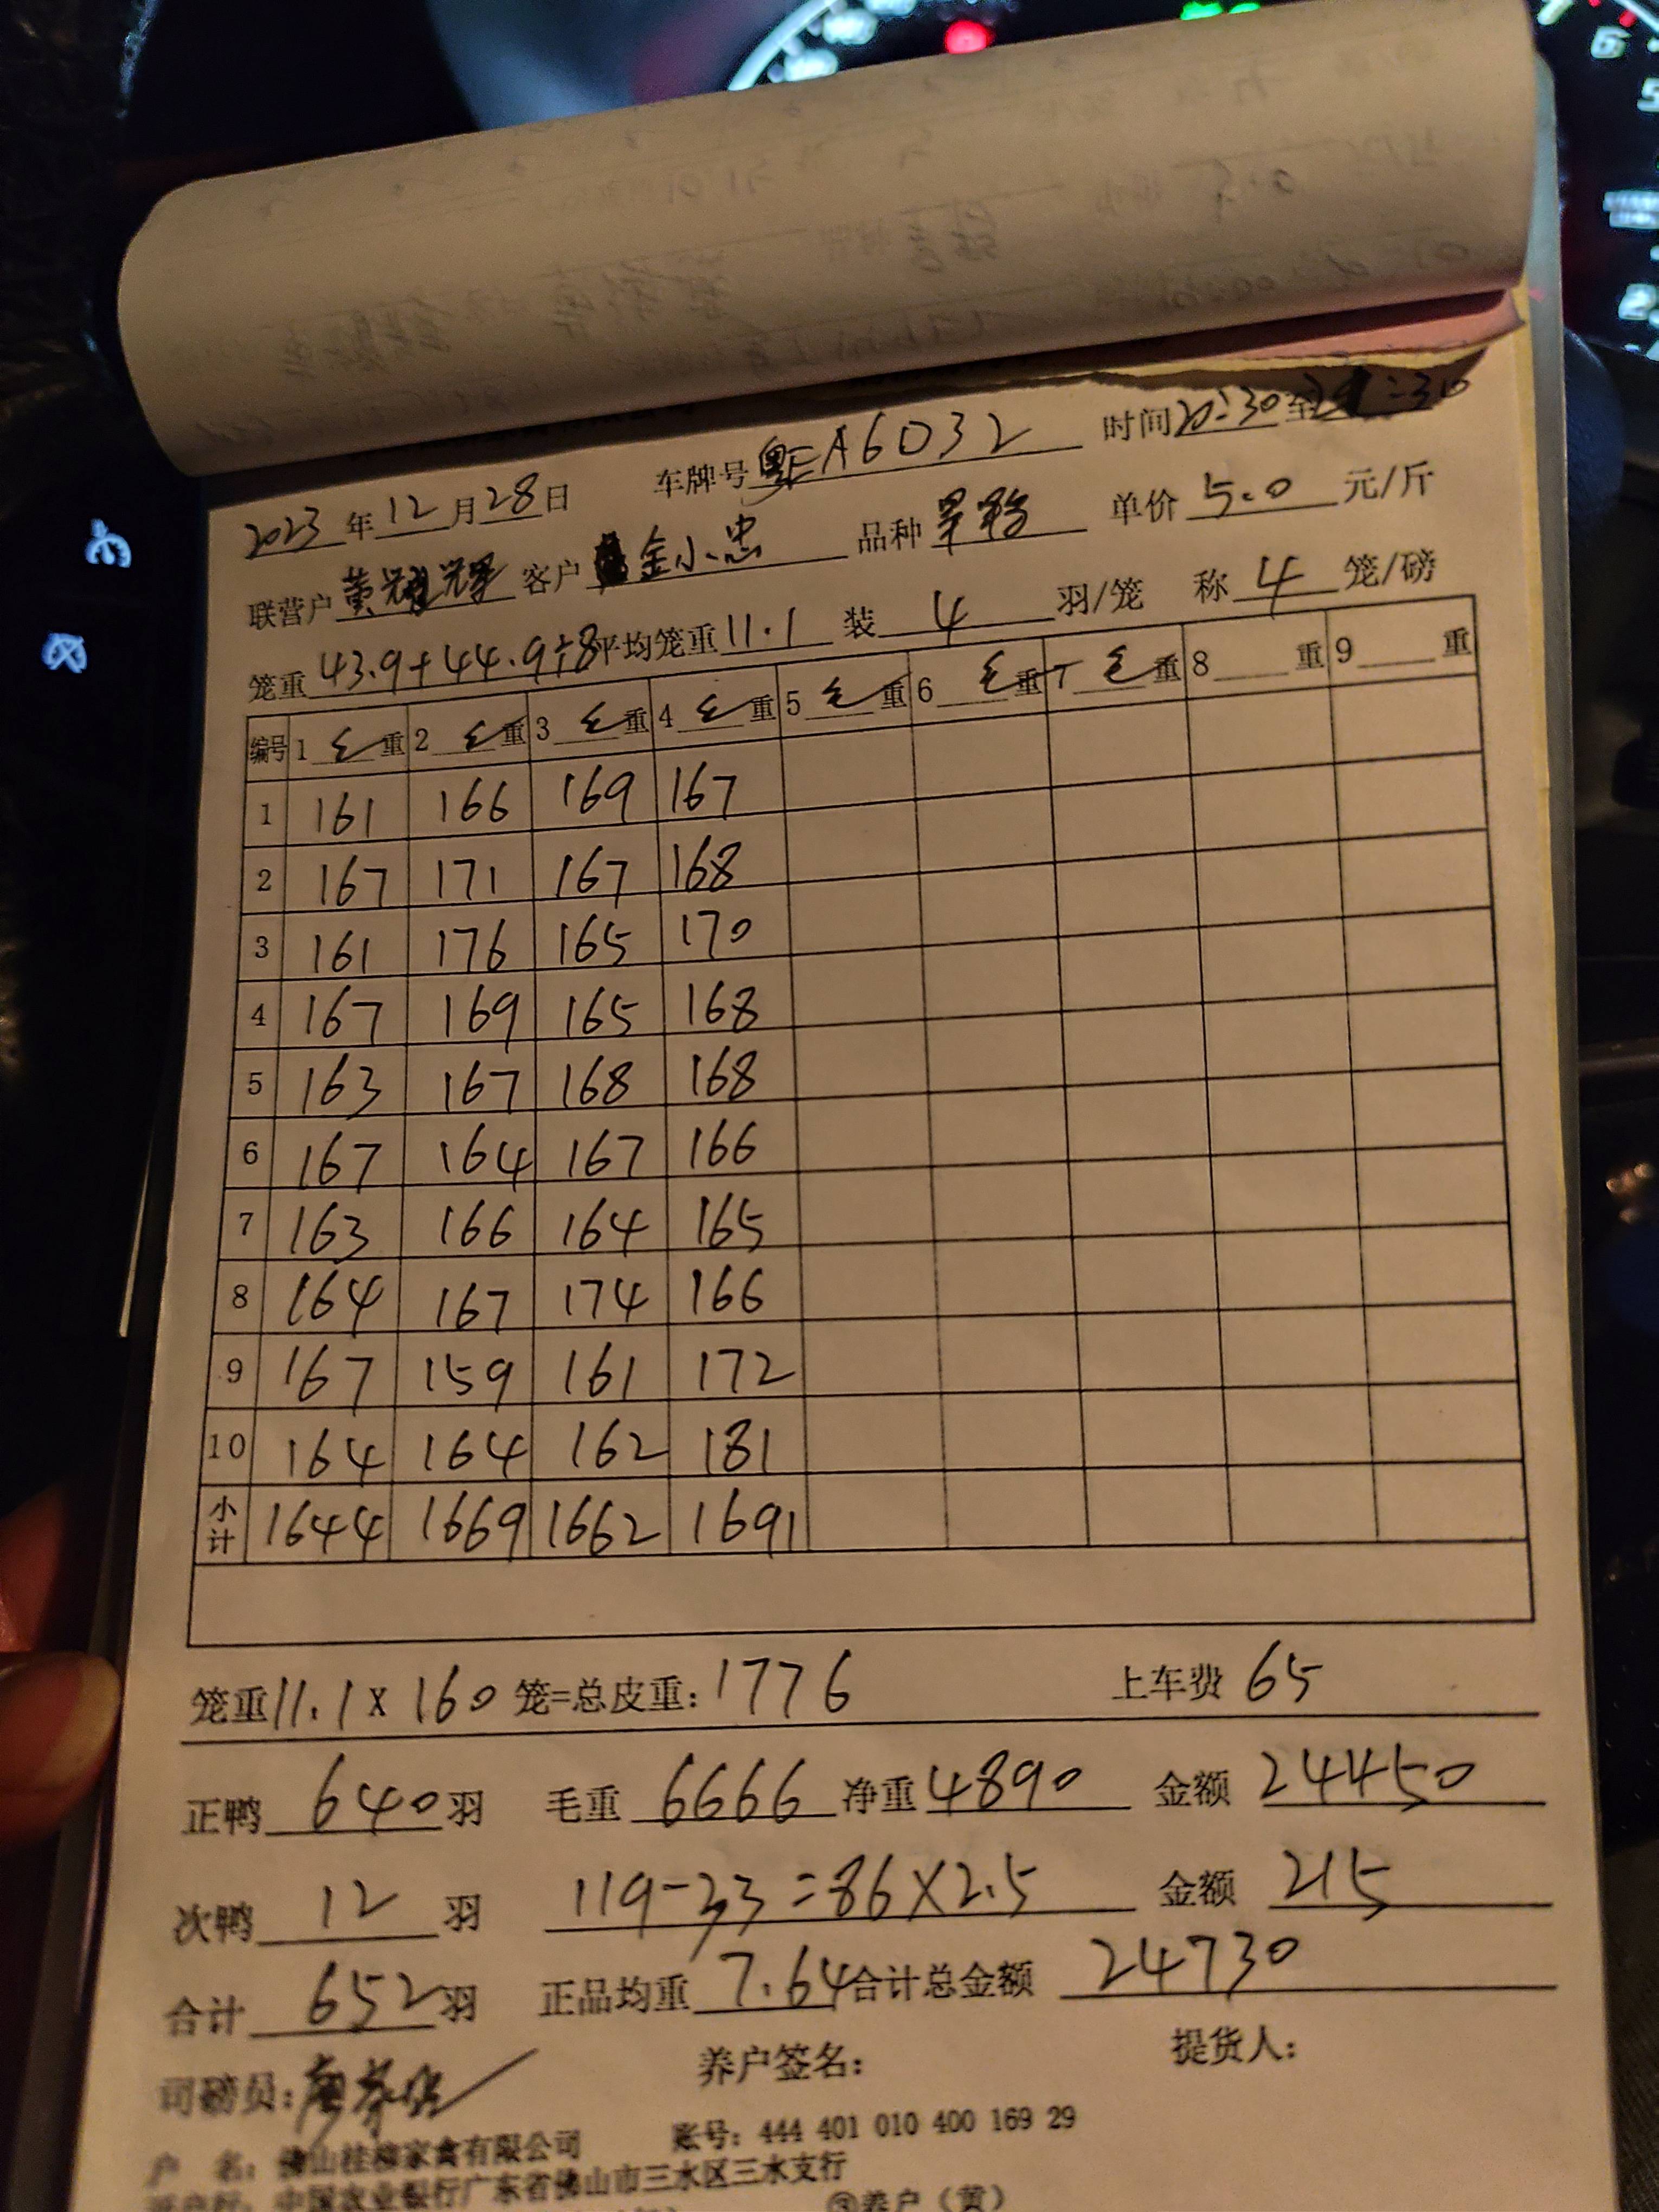 2023年12月28日 车牌号粤EA6032 时间20:30至21:30
联营户黄耀辉 客户金小忠 品种 单价5.0元/斤
笼重43.9+44.9÷8平均笼重11.1 装4羽/笼 称4笼/磅
编号 1 毛重 2 毛重 3 毛重 4 毛重 5 毛重 6 毛重 7 毛重 8 重 9 重
1 161 166 169 167
2 167 171 167 168
3 161 176 165 170
4 167 169 165 168
5 163 167 168 168
6 167 164 167 166
7 163 166 164 165
8 164 167 174 166
9 167 159 161 172
10 164 164 162 181
小计 1644 1669 1662 1691
笼重11.1×160笼=总皮重:1776 上车费 65
正鸭 640羽 毛重 6666 净重4890 金额 24450
次鸭 12 羽 119-33=86×2.5 金额 215
合计 652羽 正品均重 7.64 合计总金额 24730
司磅员: 养户签名: 提货人:
户 名: 佛山桂柳家禽有限公司 账号: 444 401 010 400 169 29
开户行: 中国农业银行广东省佛山市三水区三水支行
③养户(黄)